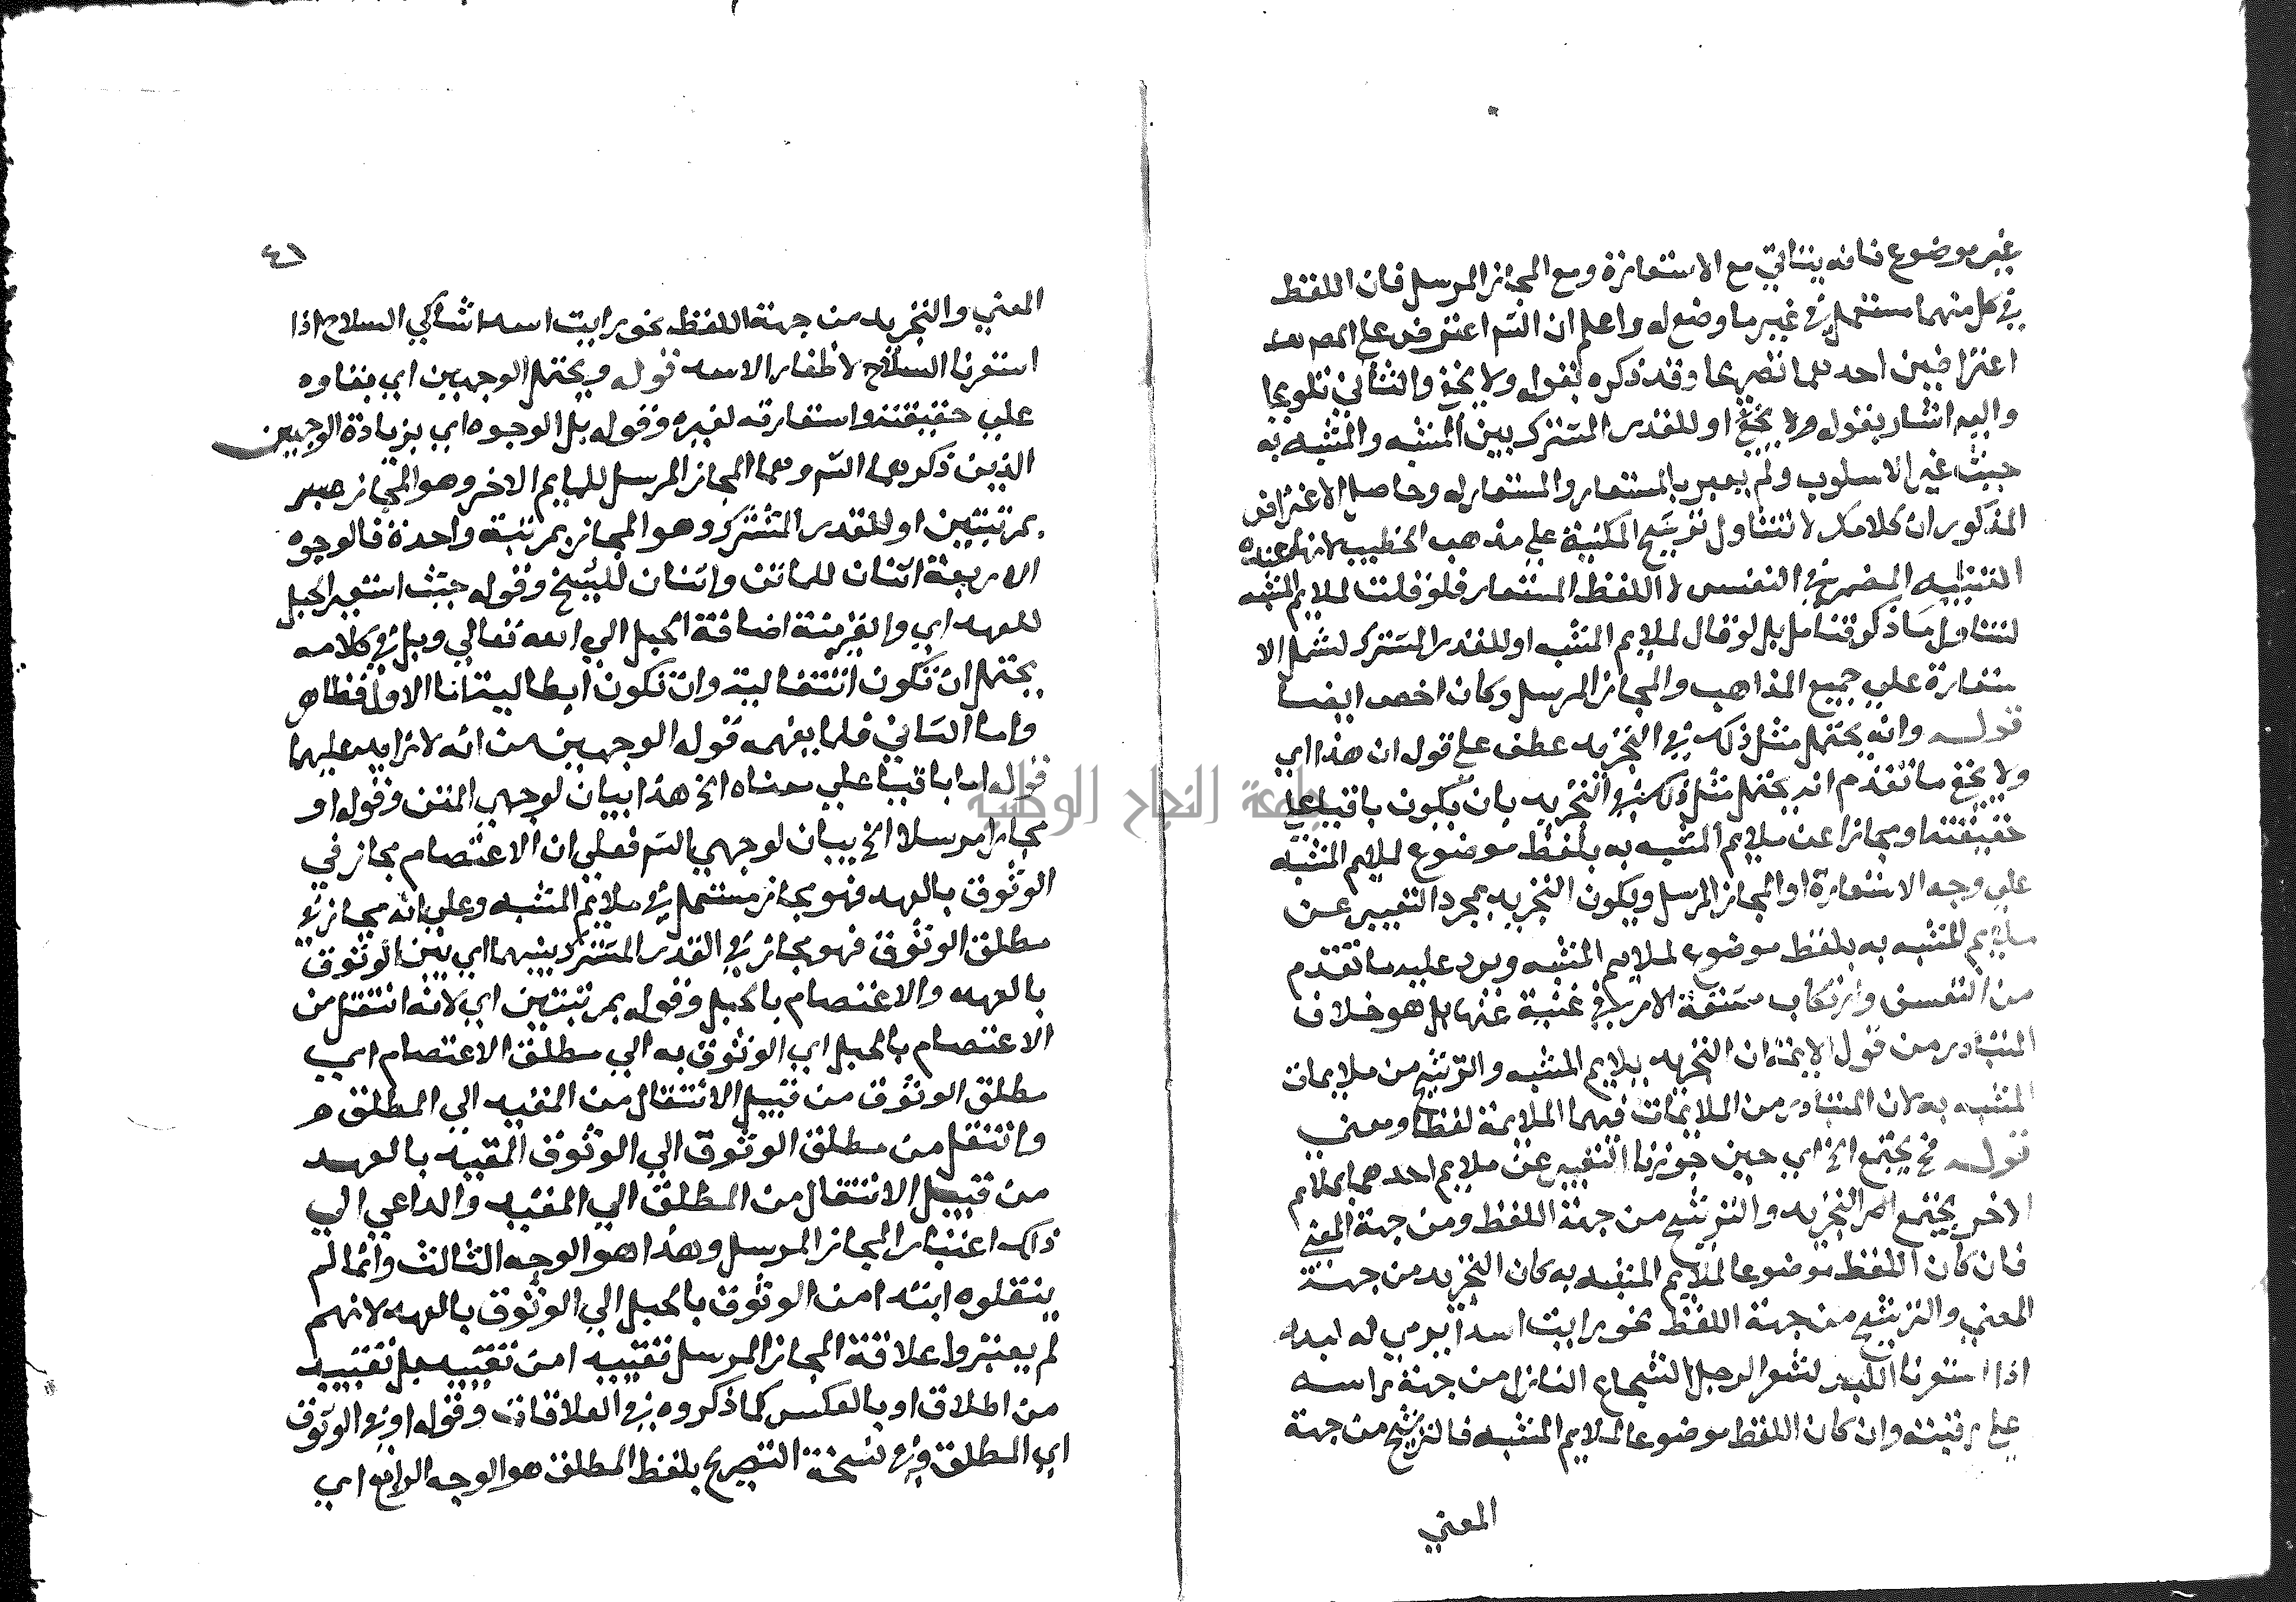 غير موضوع فانه يتاتي مع الاستعارة ومع المجاز المرسل فان اللفظ
في كل منهما مستعمل في غير ما وضع له واعلم ان الشم اعترض علي المصر
اعتراضين احدهما تصريحا وقد ذكره بقوله ولا يخفي والثاني تلويحا
واليه اشار بقوله ولا يخفي او للقدر المشترك بين المشبه والمشبه به
حيث غير الاسلوب ولم يعبر بالمستعار والمستعار له وحاصل الاعتراض
المذكور ان كلامك لا يتناول ترشيح المكنية علي مذهب الخطيب لانها عنده
التشبيه المضمر في النفس لا اللفظ المستعار فلو قلت لملايم المشبه
لتناول ما ذكر فتامل بل لو قال لملايم المشبه او للقدر المشترك لشمل الا
ستعارة علي جميع المذاهب والمجاز المرسل وكان اخصر ايضا
قوله وانه يحتمل مثل ذلك في التجريد عطف علي قوله ان هذا اي
ولا يخفي ما تقدم انه يحتمل مثل ذلك في التجريد بان يكون باقيا علي
حقيقته او مجازا عن ملايم المشبه به بلفظ موضوع لملايم المشبه
علي وجه الاستعارة او المجاز المرسل ويكون التجريد بمجرد التعبير عن
ملايم المشبه به بلفظ موضوع لملايم المشبه ويرد عليه ما تقدم
من التعسف وارتكاب مشقة الامر في غنية عنها بل هو خلاف
المتبادر من قول الايمة ان التجريد بملايم المشبه والترشيح من ملايمات
المشبه به لان المتبادر من الملايمات فيهما الملايمة لفظا ومعني
قوله فح يجتمع الخ اي حين جوزنا التعبير عن ملايم احدهما بملايم
الاخر يجتمع امر التجريد والترشيح من جهة اللفظ ومن جهة المعني
فان كان اللفظ موضوعا لملايم المشبه به كان التجريد من جهة
المعني والترشيح من جهة اللفظ نحو رايت اسدا يرمي له لبده
اذا استعرنا اللبد لشعر الرجل الشجاع النازل من جهة راسه
علي رقبته وان كان اللفظ موضوعا لملايم المشبه فالترشيح من جهة
المعني
٤١
المعني والتجريد من جهة اللفظ نحو رايت اسدا شاكي السلاح اذا
استعرنا السلاح لاظفار الاسد قوله ويحتمل الوجهين اي بقاوه
علي حقيقته واستعارته لغيره وقوله بل الوجوه اي بزيادة الوجهين
الذين ذكرهما الشم وهما المجاز المرسل للملايم الاخر وهو المجاز
بمرتبتين او للقدر المشترك وهو المجاز بمرتبة واحدة فالوجوه
الاربعة اثنان للماتن واثنان للشيخ وقوله حيث استعير الحبل
للعهد اي والقرينة اضافة الحبل الي الله تعالي وبل في كلامه
يحتمل ان تكون انتقالية وان تكون ابطالية اما الاول فظاهر
واما الثاني فلما يفهمه قوله الوجهين من انه لا زايد عليهما
قوله اما باقيا علي معناه الخ هذا بيان لوجهي المتن وقوله او
مجازا مرسلا الخ بيان لوجهي الشم فعلي ان الاعتصام مجاز في
الوثوق بالعهد فهو مجاز مستعمل في ملايم المشبه وعلي انه مجاز في
مطلق الوثوق فهو مجاز في القدر المشترك بينهما اي بين الوثوق
بالعهد والاعتصام بالحبل وقوله بمرتبتين اي لانه انتقل من
الاعتصام بالحبل اي الوثوق به الي مطلق الاعتصام اي
مطلق الوثوق من قبيل الانتقال من المقيد الي المطلق
وانتقل من مطلق الوثوق الي الوثوق المقيد بالعهد
من قبيل الانتقال من المطلق الي المقيد والداعي الي
ذلك اعتبار المجاز المرسل وهذا هو الوجه الثالث وانما لم
ينقلوه ابتداء من الوثوق بالحبل الي الوثوق بالعهد لانهم
لم يعتبروا علاقة المجاز المرسل تقييد امن تقييد بل تقييد
من اطلاق او بالعكس كما ذكروه في العلاقات وقوله او في الوثوق
اي المطلق وفي نسخة التصريح بلفظ المطلق هو الوجه الرابع اي
جامعة النجاح الوطنية